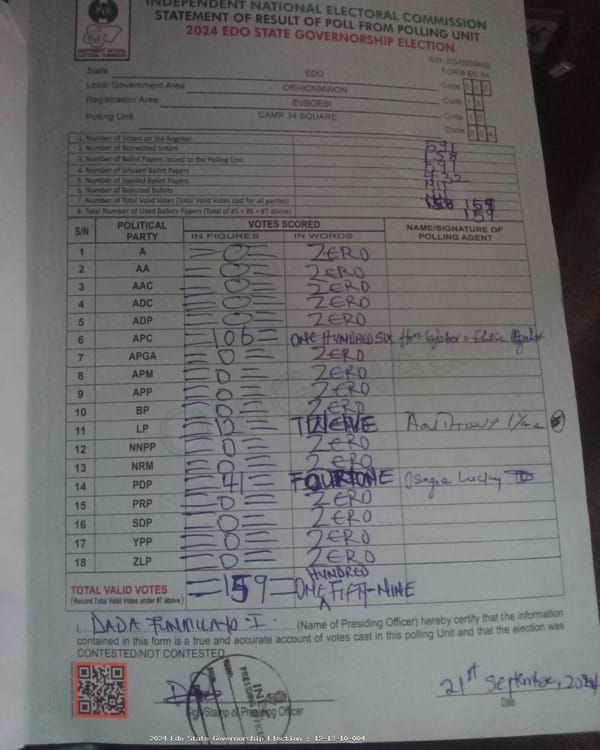 INDEPENDENT NATIONAL ELECTORAL COMMISSION
STATEMENT OF RESULT OF POLL FROM POLLING UNIT
2024 EDO STATE GOVERNORSHIP ELECTION
INEC
INDEPENDENT NATIONAL ELECTORAL COMMISSION
FORM EC 8A
State EDO Code
Local Government Area ORHIONMWON Code
Registration Area EVBOESI Code
Polling Unit CAMP 34 SQUARE Code
1. Number of Voters on the Register 591
2. Number of Accredited Voters 159
3. Number of Ballot Papers Issued to the Polling Unit
4. Number of Unused Ballot Papers
5. Number of Spoiled Ballot Papers
6. Number of Rejected Ballots
7. Number of Total Valid Votes (Total Valid Votes cast for all parties) 159
8. Total Number of Used Ballots Papers (Total of #5 + #6 + #7 above) 159
S/N POLITICAL PARTY VOTES SCORED NAME/SIGNATURE OF POLLING AGENT
IN FIGURES IN WORDS
1 A 0 ZERO
2 AA 0 ZERO
3 AAC 0 ZERO
4 ADC 0 ZERO
5 ADP 0 ZERO
6 APC 106 ONE HUNDRED SIX
7 APGA 0 ZERO
8 APM 0 ZERO
9 APP 0 ZERO
10 BP 0 ZERO
11 LP 12 TWELVE
12 NNPP 0 ZERO
13 NRM 0 ZERO
14 PDP 41 FOURTONE Osagie Lucky
15 PRP 0 ZERO
16 SDP 0 ZERO
17 YPP 0 ZERO
18 ZLP 0 ZERO
TOTAL VALID VOTES =159= ONE HUNDRED FIFTY-NINE
(Record Total Valid Votes under #7 above)
I, DADA FUNMILAYO I. (Name of Presiding Officer) hereby certify that the information
contained in this form is a true and accurate account of votes cast in this polling Unit and that the election was
CONTESTED/NOT CONTESTED
21st September, 2024
Sign/Stamp of Presiding Officer Date
INEC
PRESIDING OFFICER
2024 Edo State Governorship Election : 12-13-10-004